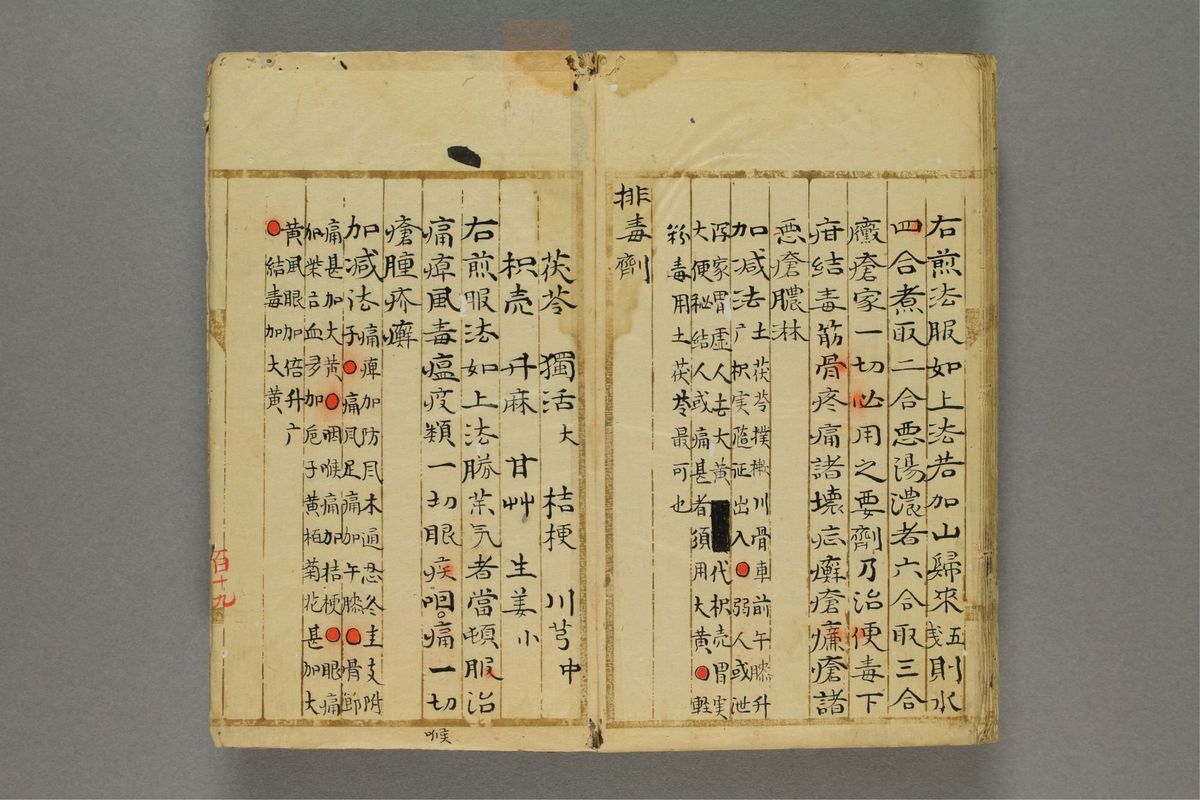 右煎法服如上法若加山歸來五戔則水
四合煮取二合悪湯濃者六合取三合
黴瘡家一切必用之要劑乃治便毒下
疳結毒筋骨疼痛諸壊症癬瘡臁瘡諸
悪瘡膿淋
加减法土茯苓撲樕川骨車前午膝升
广枳実隨证出入●弱人或泄
泻家胃虚人去大黄代枳壳胃実
大便秘结人或痛甚者須用大黄●軽
粉毒用土茯苓最可也
排毒劑
茯苓 獨活大 桔梗 川芎中
枳壳 升麻 甘艸 生姜小
右煎服法如上法勝茶氕者當頓服治
痛痺風毒瘟疫類一切眼疾咽痛一切
瘡腫疥癬
加减法痛痺加防凨木通忍冬圭支附
子●痛凨足痛加午膝●骨節
痛甚加大黄●咽喉痛加桔梗●眼痛
加柴古血多加巵子黄栢菊花甚加大
黄風眼加倍升广
●結毒加大黄
喉
百十九